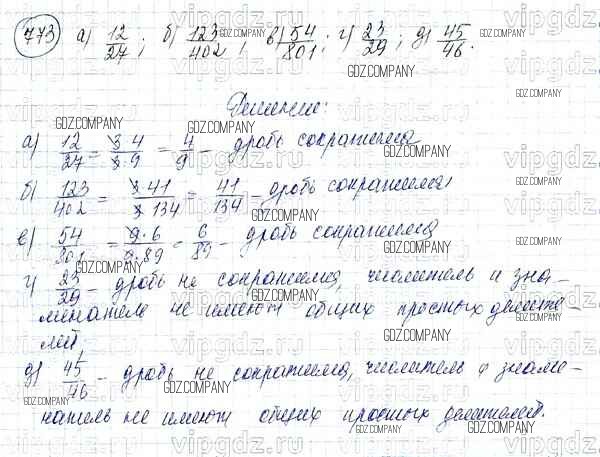 773 а) 12/27; б) 123/402; в) 54/801; г) 23/29; д) 45/46.
Решение:
а) 12/27 = 3·4/3·9 = 4/9 - дробь сократима
б) 123/402 = 3·41/3·134 = 41/134 - дробь сократима
в) 54/801 = 9·6/9·89 = 6/89 - дробь сократима
г) 23/29 - дробь не сократима, числитель и зна-
менатель не имеют общих простых делите-
лей;
д) 45/46 - дробь не сократима, числитель и знаме-
натель не имеют общих простых делителей.